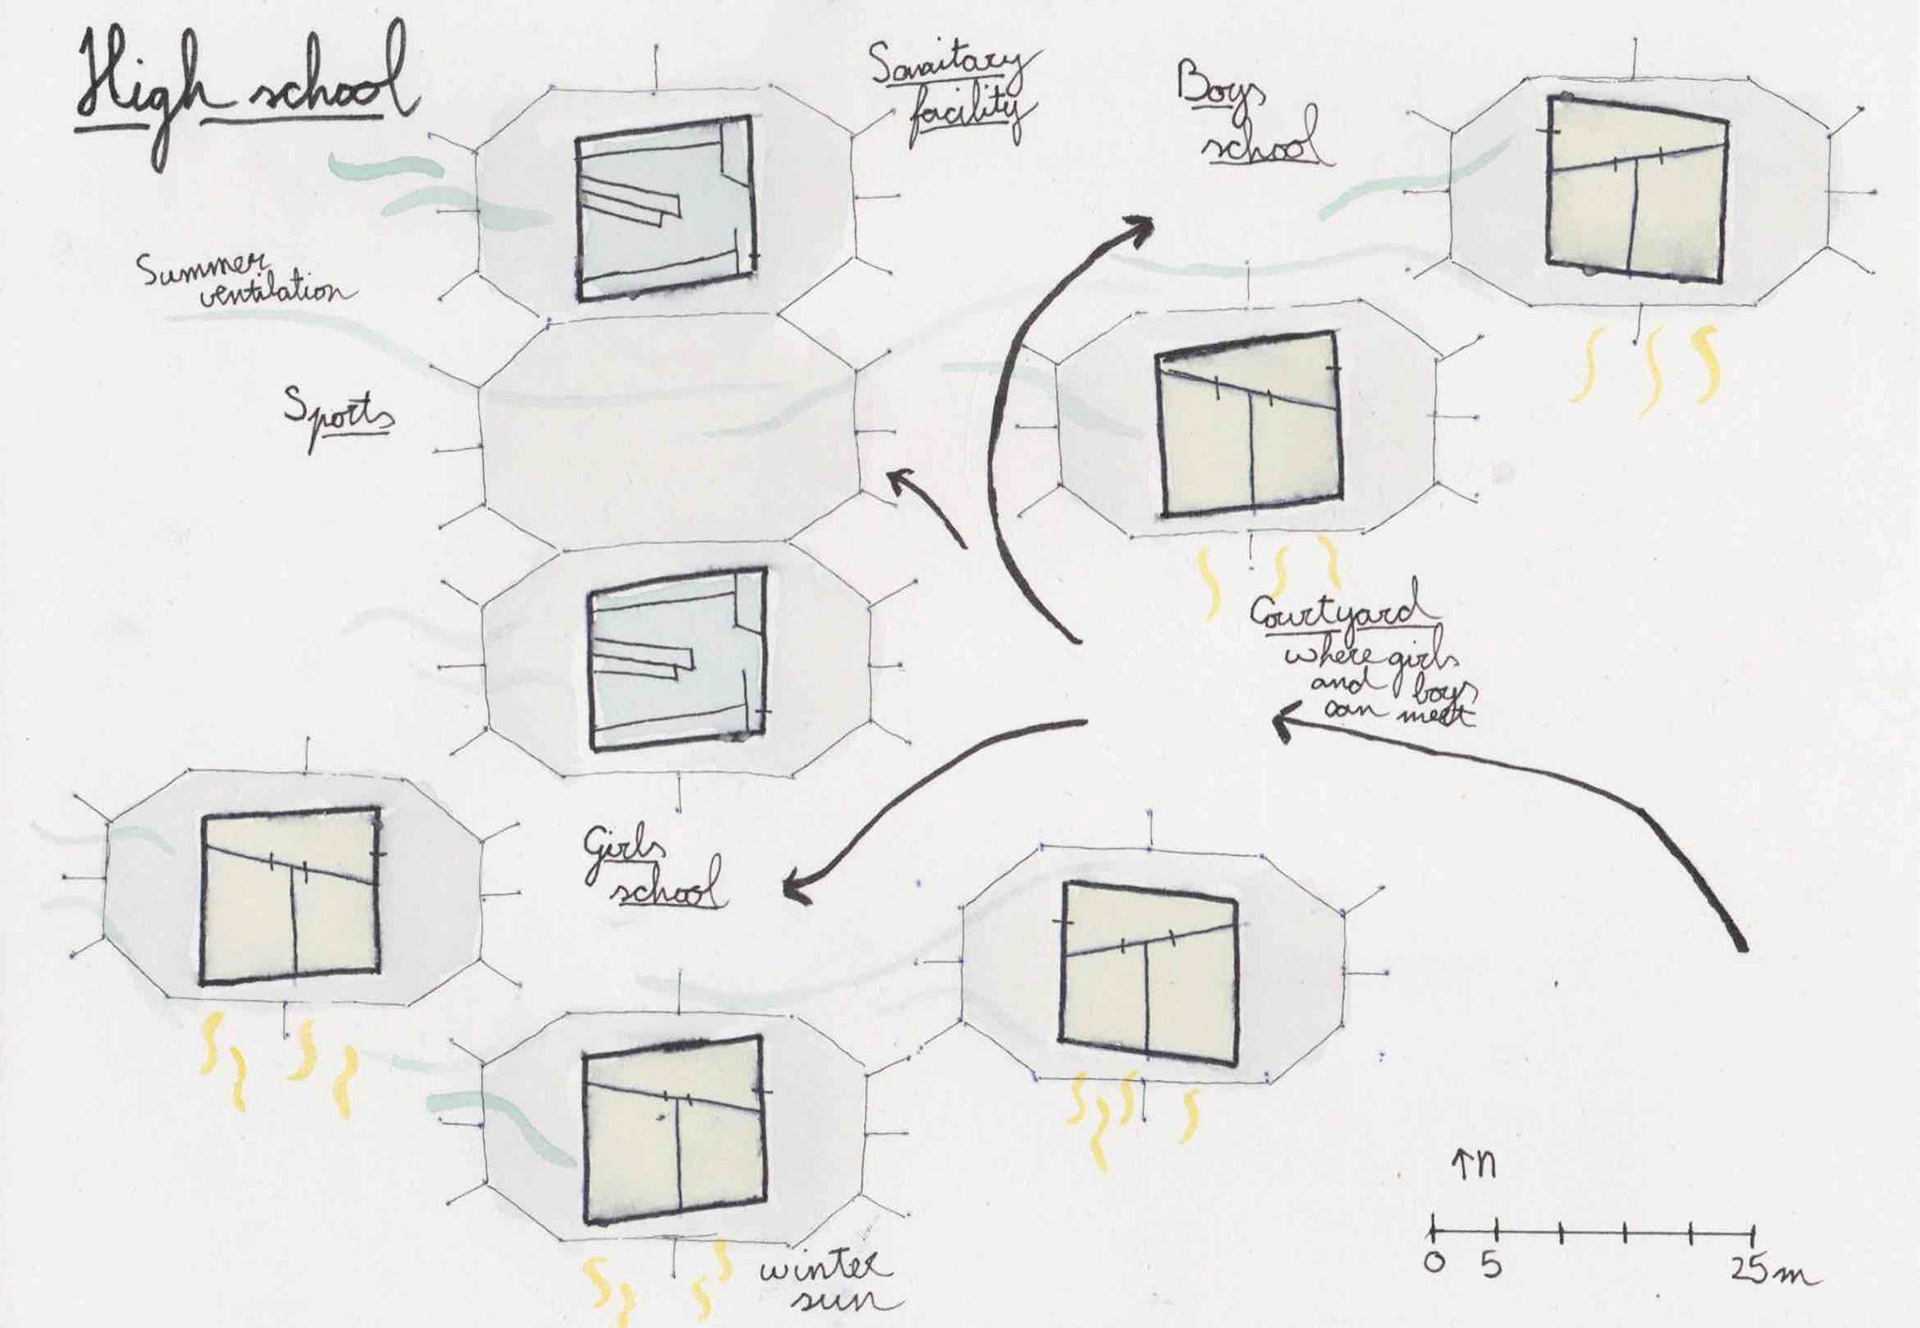 High school
Sanitary
facility
Boys
school
Summer
ventilation
Sports
Courtyard
where girls
and boys
can meet
Girls
school
winter
sun
↑n
0 5 25m